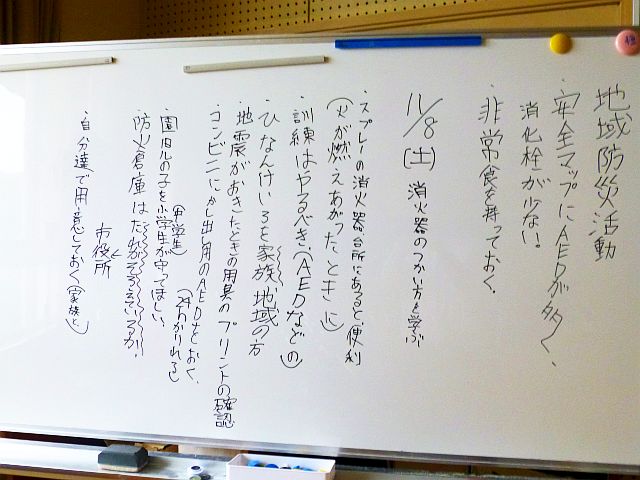 地域防災活動
・安全マップにAEDが多く、
消化栓が少ない。
・非常食を持っておく。
11/8(土) 消火器のつかい方を学ぶ
・スプレーの消火器台所にあると便利
(火が燃えあがったときに)
・訓練はやるべき。(AEDなどの)
・ひなんけいろを家族、地域の方
・地震がおきたときの用具のプリントの確認
・コンビニにかし出し用のAEDをおく。
・園児の子を小学生が守ってほしい
(中学生)
・防火倉庫はだれができているか。
市役所
・自分達で用意しておく(家族と)